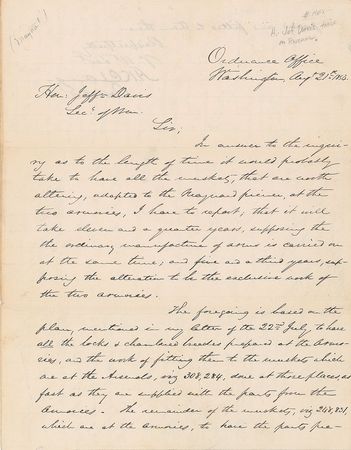 (Maynard)
Ordnance Office
Washington, Augt 21st 185
Hon: Jeffn Davis
Secy of War.
Sir;
In answer to the inquir-
y as to the length of time it would probably
take to have all the muskets, that are worth
altering, adapted to the Maynard primer, at the
two armories, I have to report; that it will
take eleven and a quarter years, supposing the
the ordinary manufacture of arms is carried on
at the same time; and five and a third years, sup-
posing the alteration to be the exclusive work of
the two armories.
The foregoing is based on the
plan, mentioned in my letter of the 22nd July, to have
all the locks & chambered breeches prepared at the Armo-
ries, and the work of fitting them to the muskets which
are at the Arsenals, viz 308,284, done at those places, as
fast as they are supplied with the parts from the
Armories. The remainder of the muskets, viz 248,831,
which are at the armories, to have the parts pre-